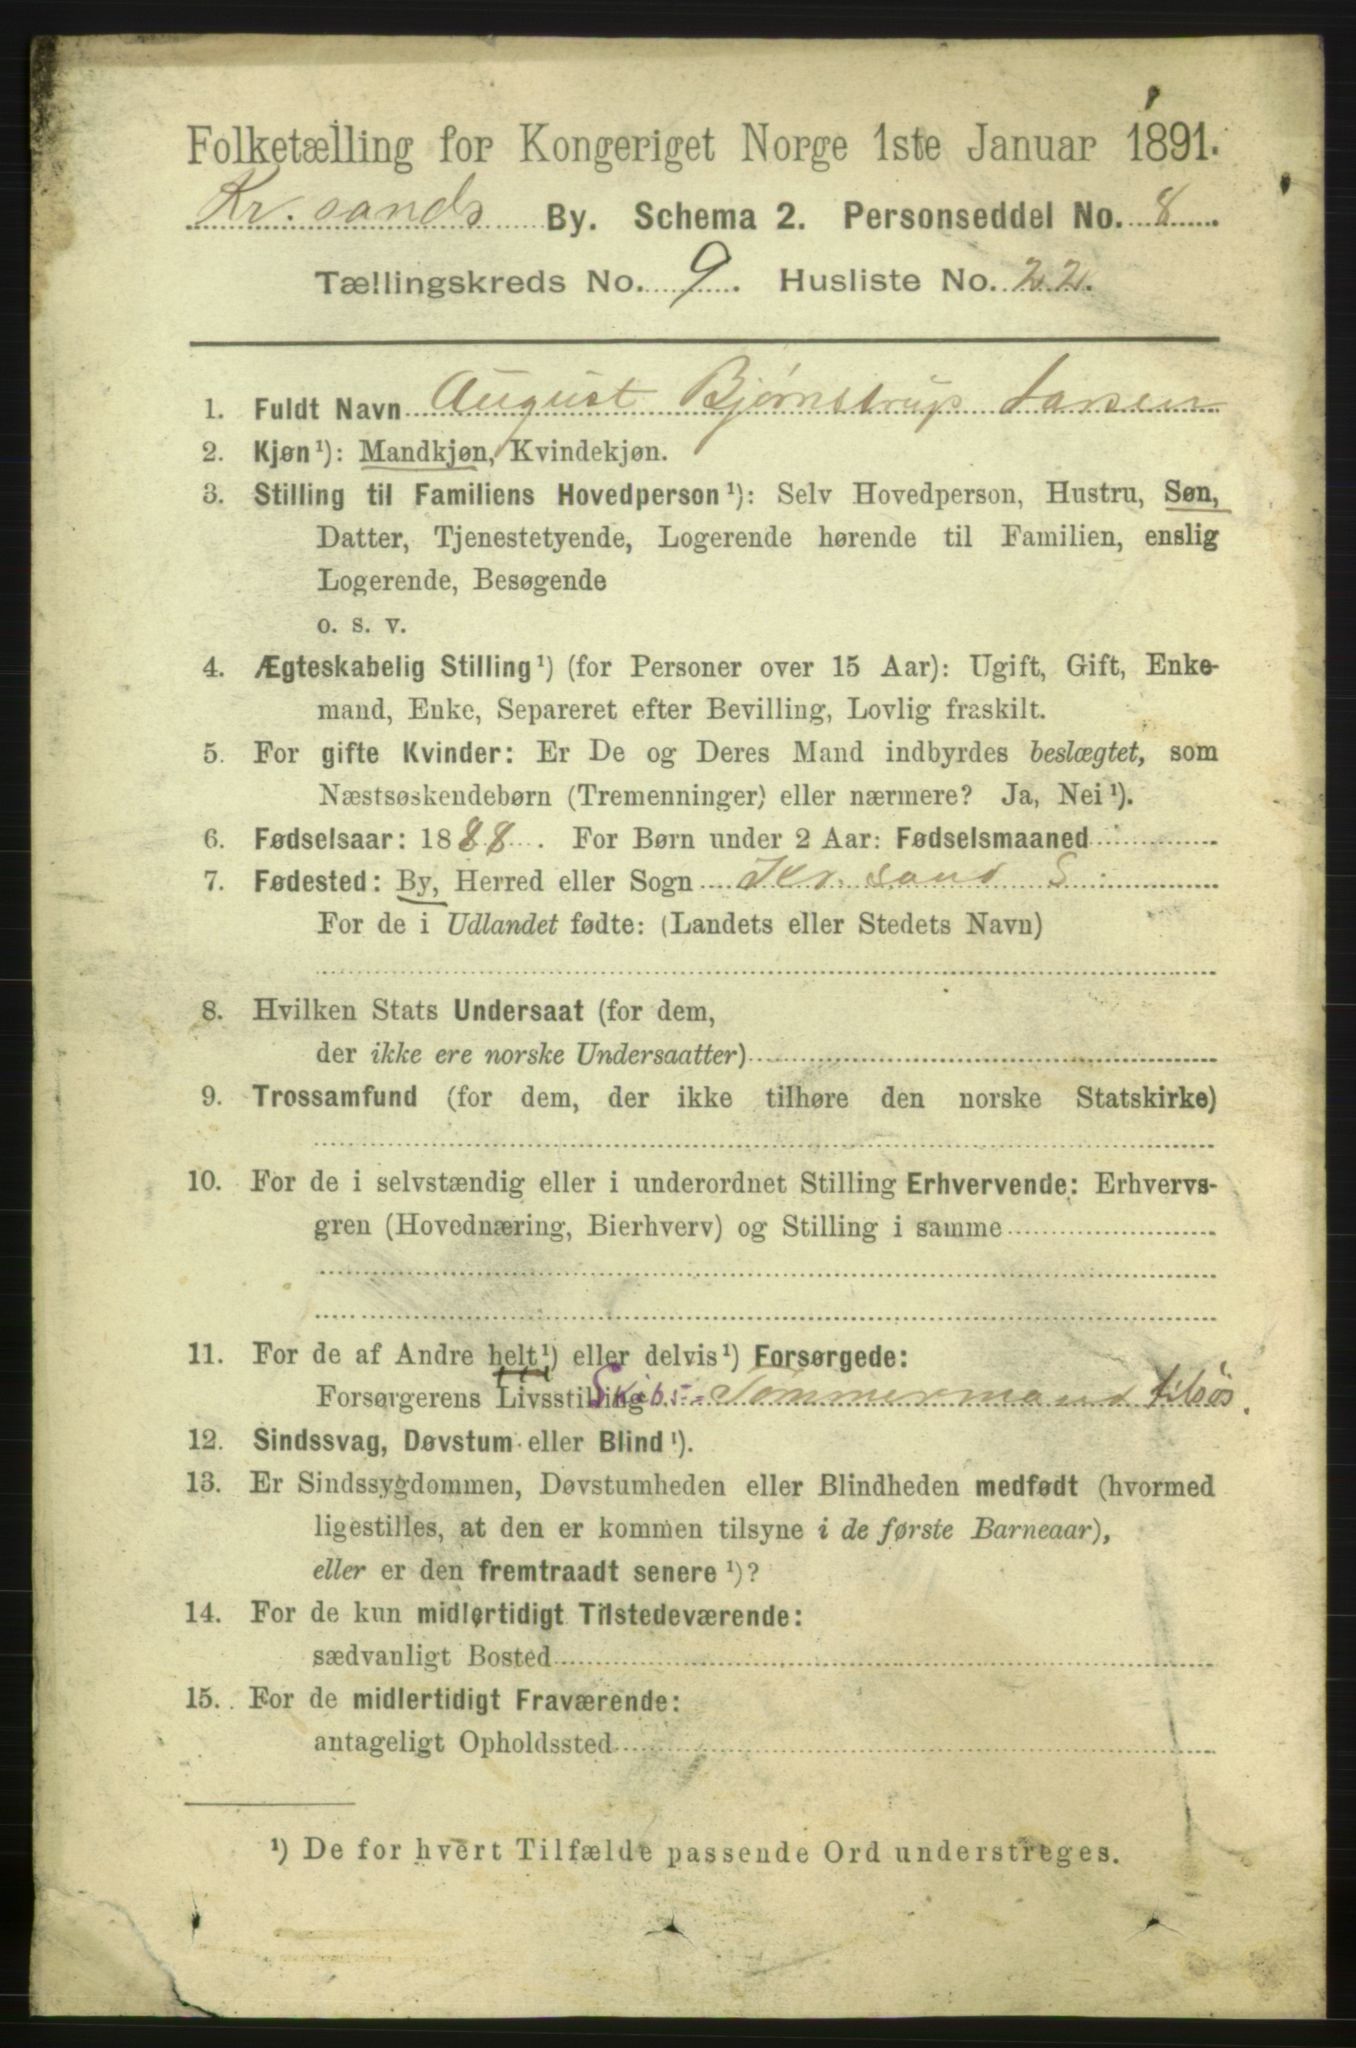 Folketælling for Kongeriget Norge 1ste Januar 1891.
Kr. sands By. Schema 2. Personseddel No. 8
Tællingskreds No. 9. Husliste No. 22.
1. Fuldt Navn August Bjørnstrup Larsen
2. Kjøn¹): Mandkjøn, Kvindekjøn.
3. Stilling til Familiens Hovedperson¹): Selv Hovedperson, Hustru, Søn,
Datter, Tjenestetyende, Logerende hørende til Familien, enslig
Logerende, Besøgende
o. s. v.
4. Ægteskabelig Stilling¹) (for Personer over 15 Aar): Ugift, Gift, Enke-
mand, Enke, Separeret efter Bevilling, Lovlig fraskilt.
5. For gifte Kvinder: Er De og Deres Mand indbyrdes beslægtet, som
Næstsøskendebørn (Tremenninger) eller nærmere? Ja, Nei¹).
6. Fødselsaar: 1888. For Børn under 2 Aar: Fødselsmaaned
7. Fødested: By, Herred eller Sogn Kr. sand S
For de i Udlandet fødte: (Landets eller Stedets Navn)
8. Hvilken Stats Undersaat (for dem,
der ikke ere norske Undersaatter)
9. Trossamfund (for dem, der ikke tilhøre den norske Statskirke)
10. For de i selvstændig eller i underordnet Stilling Erhvervende: Erhvervs-
gren (Hovednæring, Bierhverv) og Stilling i samme
11. For de af Andre helt¹) eller delvis¹) Forsørgede:
Forsørgerens Livsstilling Skibs-Tømmermand tilsøs.
12. Sindssvag, Døvstum eller Blind¹).
13. Er Sindssygdommen, Døvstumheden eller Blindheden medfødt (hvormed
ligestilles, at den er kommen tilsyne i de første Barneaar),
eller er den fremtraadt senere¹)?
14. For de kun midlertidigt Tilstedeværende:
sædvanligt Bosted
15. For de midlertidigt Fraværende:
antageligt Opholdssted
¹) De for hvert Tilfælde passende Ord understreges.